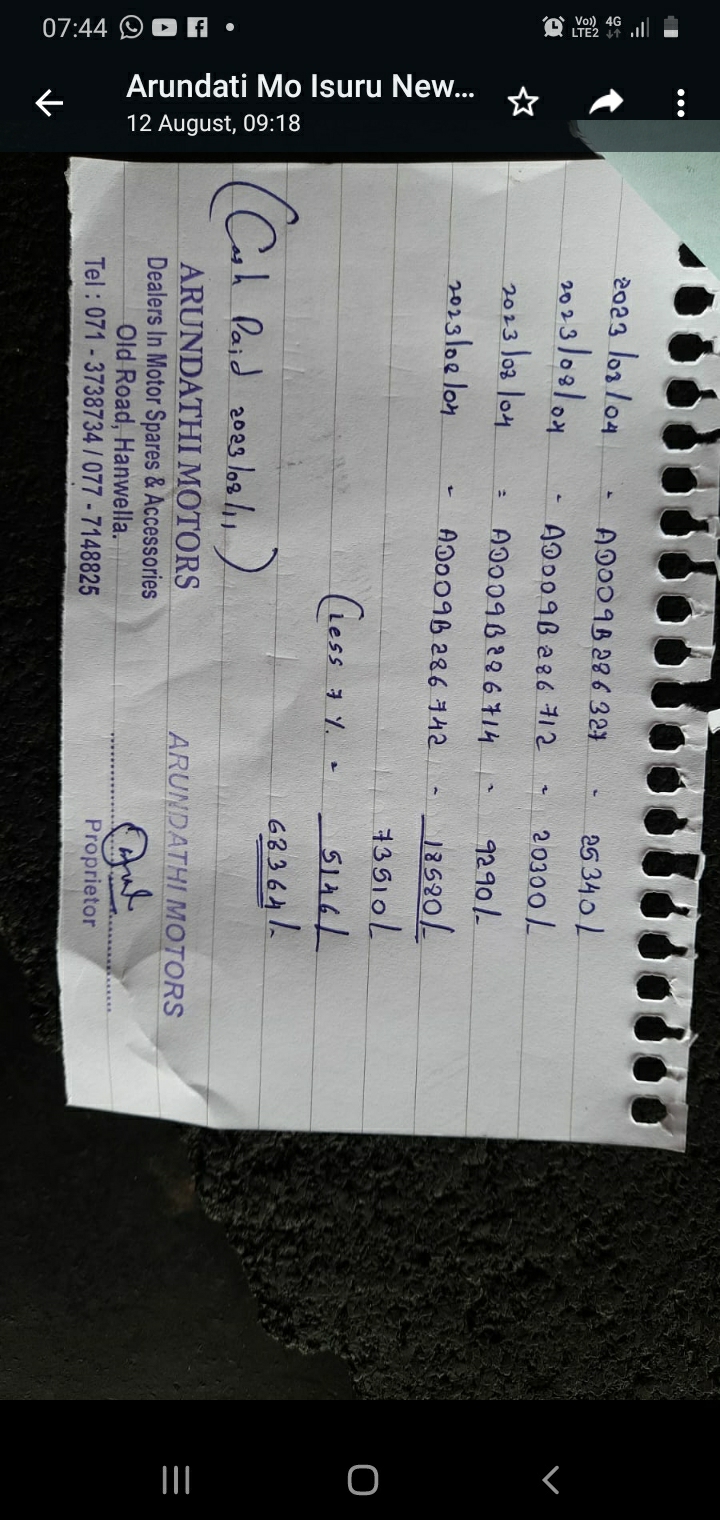 07:44
Vo)) 4G
LTE2
Arundati Mo Isuru New...
12 August, 09:18
2023/08/04 - AD009B286327 - 25340/
2023/08/04 - AD009B286712 = 20300/-
2023/08/04 = AD009B286714 - 9290/-
2023/08/04 - AD009B286742 - 18580/-
73510/-
(Less 7% - 5146/-
68364/-
(Cash Paid 2023/08/11)
ARUNDATHI MOTORS
Dealers In Motor Spares & Accessories
Old Road, Hanwella.
Tel : 071 - 3738734 / 077 - 7148825
ARUNDATHI MOTORS
Proprietor